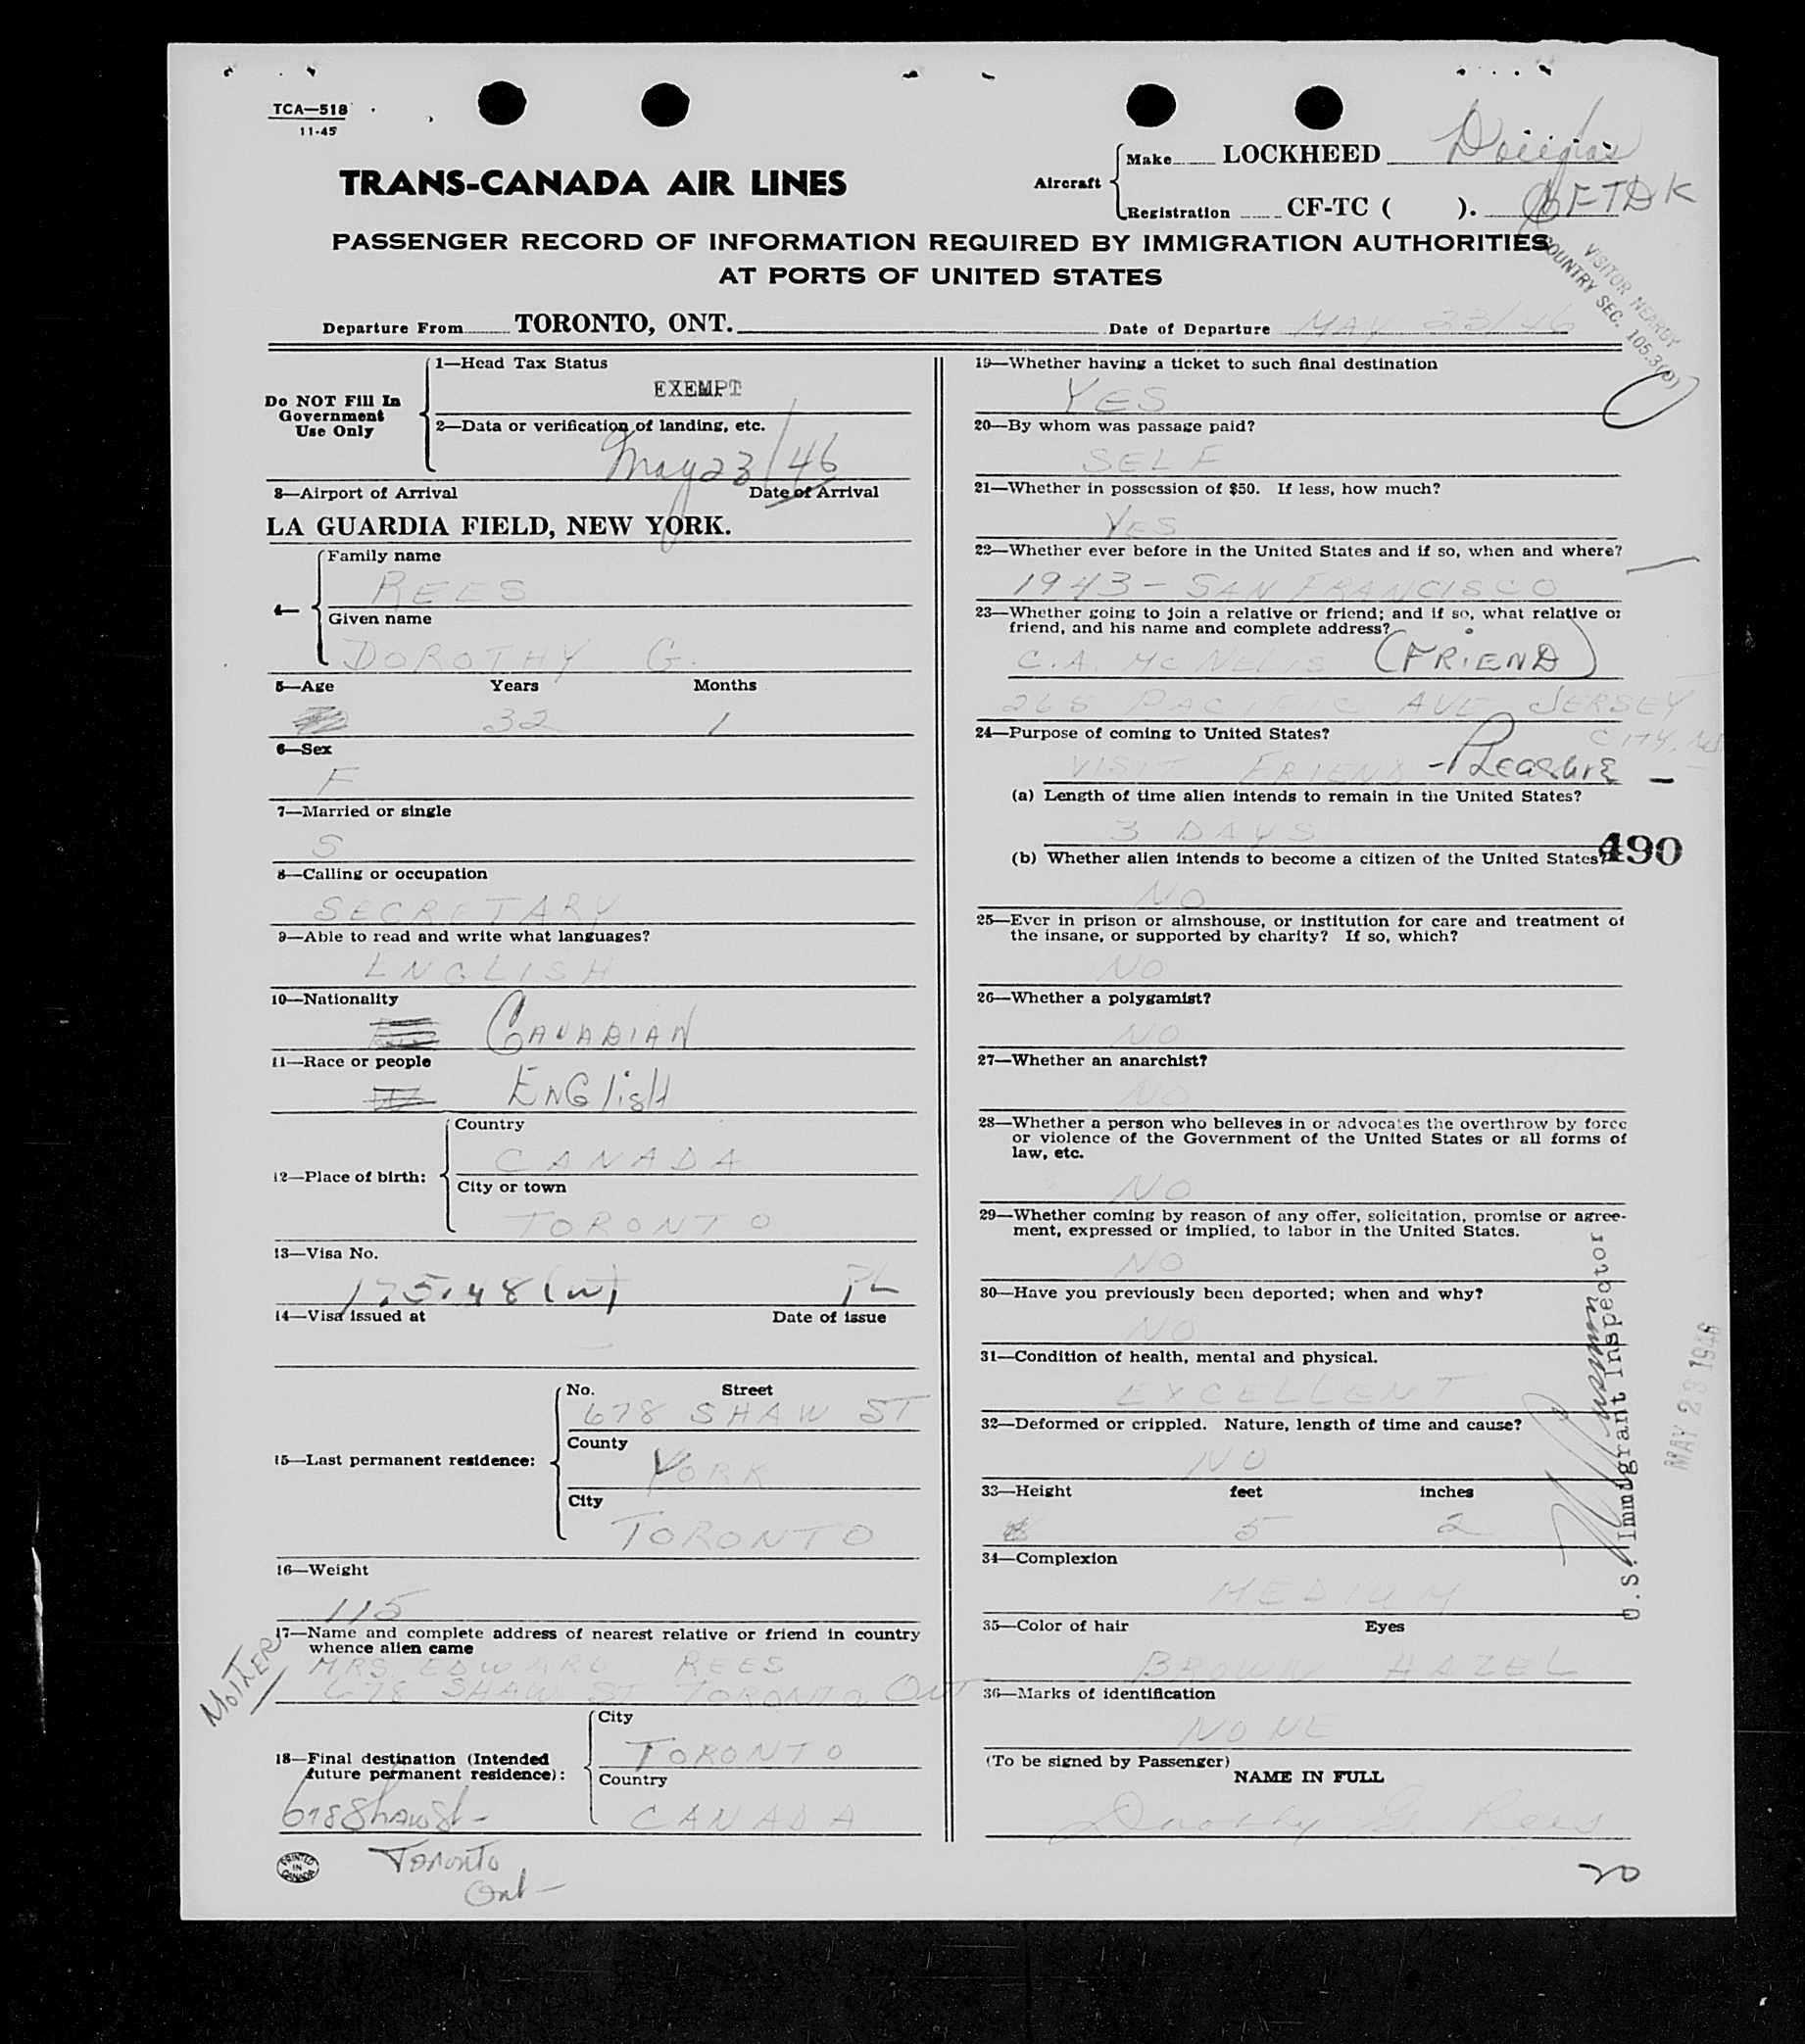 TCA—518
11-45
TRANS-CANADA AIR LINES
Aircraft
Make LOCKHEED Douglas
Registration CF-TC ( ). CFTDK
PASSENGER RECORD OF INFORMATION REQUIRED BY IMMIGRATION AUTHORITIES
AT PORTS OF UNITED STATES
VISITOR NEARBY
COUNTRY SEC.
Departure From TORONTO, ONT. Date of Departure MAY 23/46
Do NOT Fill In
Government
Use Only
1—Head Tax Status
EXEMPT
2—Data or verification of landing, etc.
May 23/46
3—Airport of Arrival Date of Arrival
LA GUARDIA FIELD, NEW YORK.
4—
Family name
REES
Given name
DOROTHY G.
5—Age Years Months
32 1
6—Sex
F
7—Married or single
S
8—Calling or occupation
SECRETARY
9—Able to read and write what languages?
ENGLISH
10—Nationality
CANADIAN
11—Race or people
ENGlisH
12—Place of birth:
Country
CANADA
City or town
TORONTO
13—Visa No.
175.48(w) PL
14—Visa issued at Date of issue
15—Last permanent residence:
No. Street
678 SHAW ST
County
YORK
City
TORONTO
16—Weight
115
17—Name and complete address of nearest relative or friend in country
whence alien came
MOTHER
MRS. EDWARD REES
678 SHAW ST TORONTO ONT
18—Final destination (Intended
future permanent residence):
City
TORONTO
Country
CANADA
678 Shaw St-
Toronto
Ont-
PRINTED
IN
CANADA
19—Whether having a ticket to such final destination
YES
20—By whom was passage paid?
SELF
21—Whether in possession of $50. If less, how much?
YES
22—Whether ever before in the United States and if so, when and where?
1943 - SAN FRANCISCO
23—Whether going to join a relative or friend; and if so, what relative or
friend, and his name and complete address?
C.A. MCNELIS (FRIEND)
268 PACIFIC AVE JERSEY
CITY, NJ
24—Purpose of coming to United States?
VISIT FRIEND - Pleasure -
(a) Length of time alien intends to remain in the United States?
3 DAYS
490
(b) Whether alien intends to become a citizen of the United States?
NO
25—Ever in prison or almshouse, or institution for care and treatment of
the insane, or supported by charity? If so, which?
NO
26—Whether a polygamist?
NO
27—Whether an anarchist?
NO
28—Whether a person who believes in or advocates the overthrow by force
or violence of the Government of the United States or all forms of
law, etc.
NO
29—Whether coming by reason of any offer, solicitation, promise or agree-
ment, expressed or implied, to labor in the United States.
NO
30—Have you previously been deported; when and why?
NO
31—Condition of health, mental and physical.
EXCELLENT
32—Deformed or crippled. Nature, length of time and cause?
NO
33—Height feet inches
5 2
34—Complexion
MEDIUM
35—Color of hair Eyes
BROWN HAZEL
36—Marks of identification
NONE
(To be signed by Passenger)
NAME IN FULL
Dorothy G. Rees
20
U.S. Immigrant Inspector
MAY 23 1946